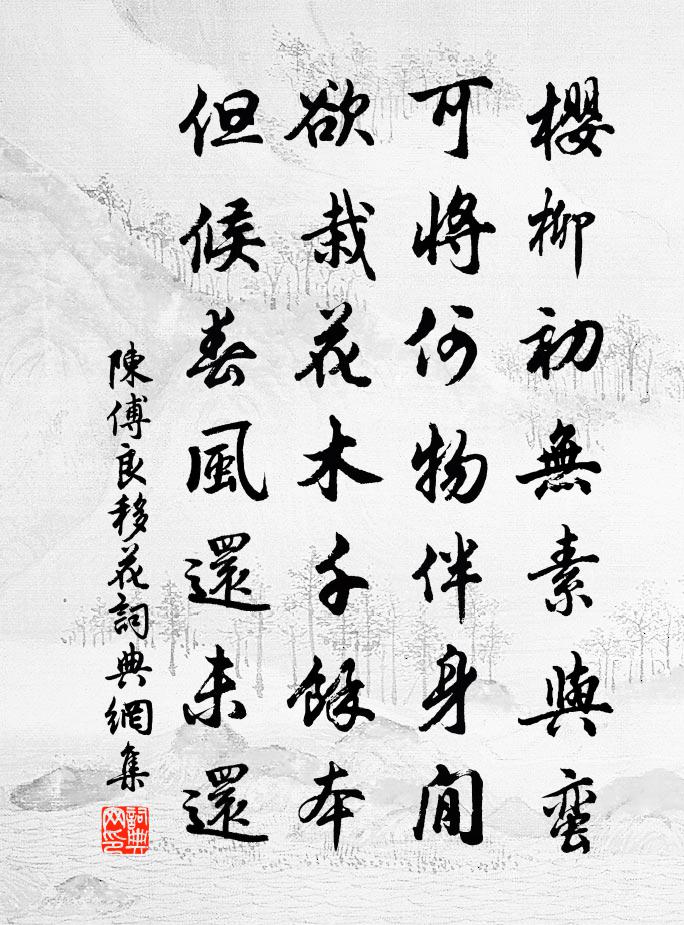 櫻柳初無素與蠻
可將何物伴身閒
欲栽花木千餘本
但候春風還未還
陳傅良移花詞典網集
詞典網印